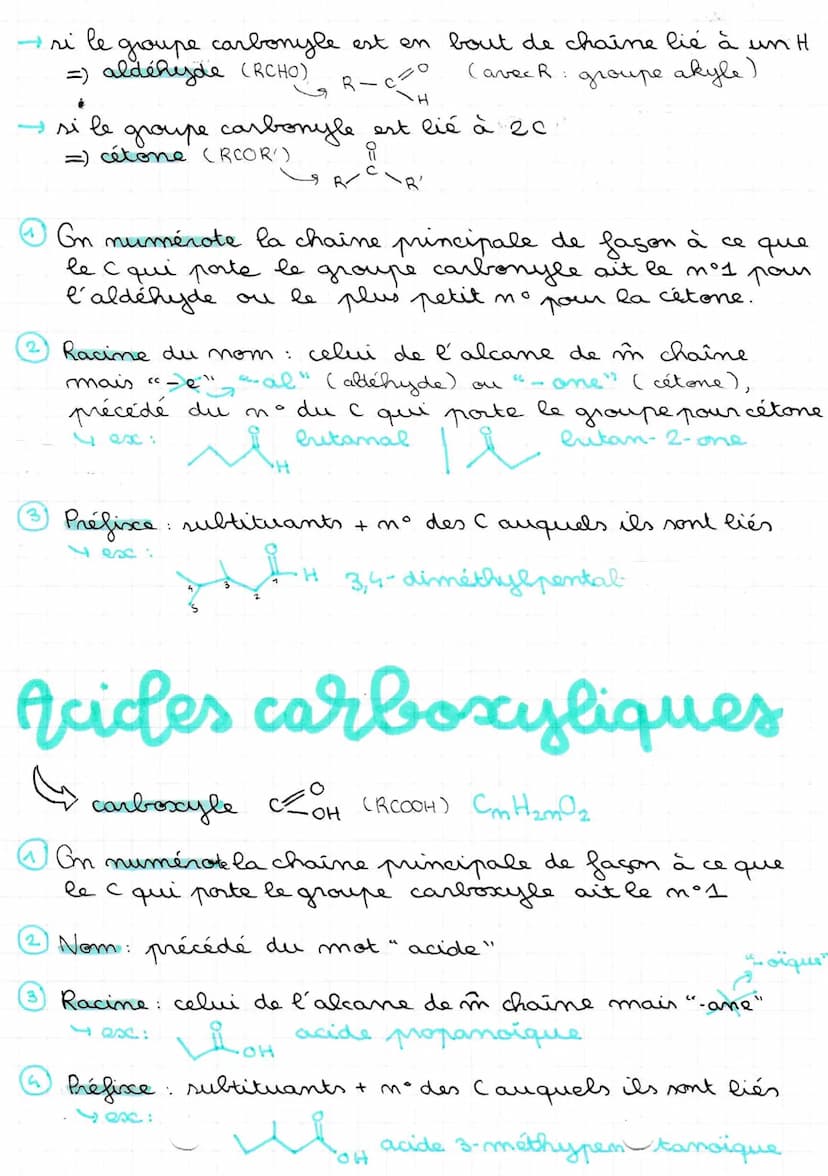 → si le groupe carbonyle est en bout de chaîne lié à un H
=) aldéhyde (RCHO) R-C=O H (avec R : groupe akyle)
→ si le groupe carbonyle est lié à 2C
=) cétone (RCOR')
O
R C R'
① On numérote la chaîne principale de façon à ce que
le C qui porte le groupe carbonyle ait le n°1 pour
l'aldéhyde ou le plus petit n° pour la cétone.
② Racine du nom : celui de l'alcane de m̂ chaîne
mais "-e" "-al" (aldéhyde) ou "-one" (cétone),
précédé du n° du C qui porte le groupe pour cétone
↳ ex : O H butanal | O butan-2-one
③ Préfixe : subtituants + n° des C auquels ils sont liés
↳ ex :
O H 5 4 3 2 1 3,4-diméthylpental
Acides carboxyliques
carboxyle C=O OH (RCOOH) CnH2nO2
① On numérote la chaîne principale de façon à ce que
le C qui porte le groupe carboxyle ait le n°1
② Nom : précédé du mot "acide"
"-oïque"
③ Racine : celui de l'alcane de m̂ chaîne mais "-ane"
↳ ex : O OH acide propanoïque
④ Préfixe : subtituants + n° des C auquels ils sont liés
↳ ex :
O OH acide 3-méthypen‿tanoïque